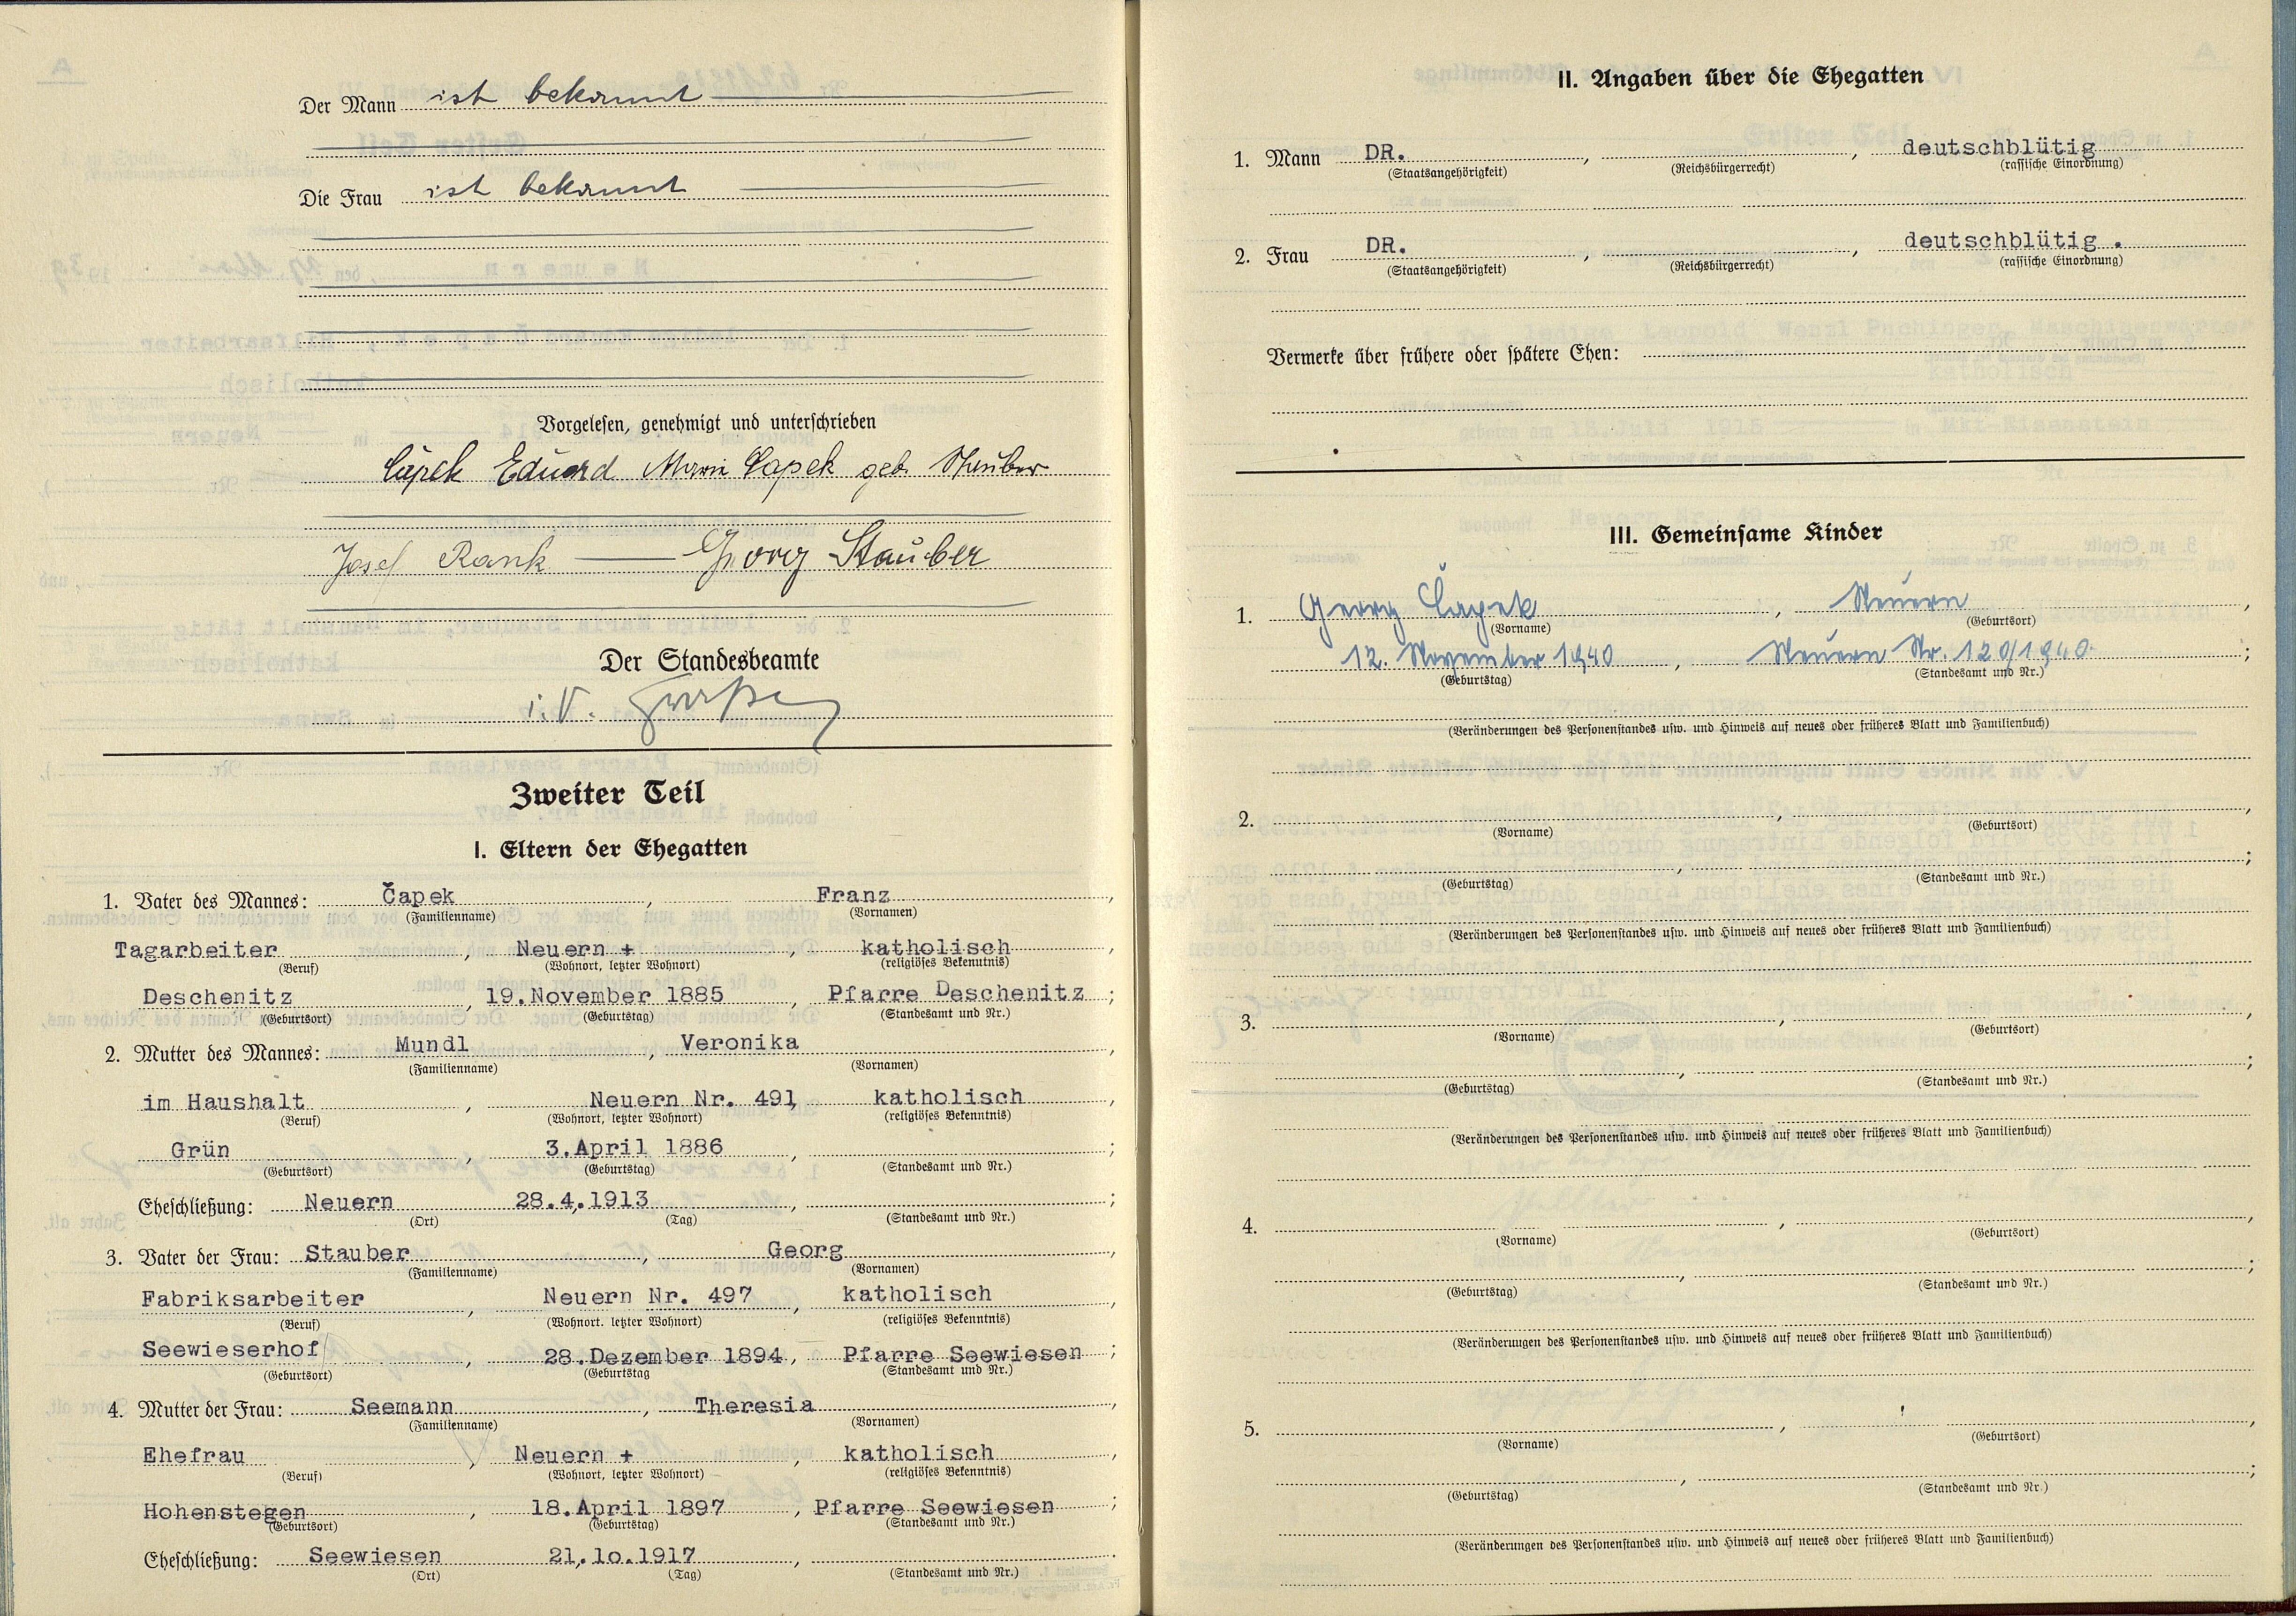 Der Mann ist bekannt
Die Frau ist bekannt
Vorgelesen, genehmigt und unterschrieben
Čapek Eduard Marie Čapek geb. Stauber
Josef Rank Georg Stauber
Der Standesbeamte
i.V.
Zweiter Teil
I. Eltern der Ehegatten
1. Vater des Mannes: Čapek, Franz,
(Familienname) (Vornamen)
Tagarbeiter, Neuern +, katholisch,
(Beruf) (Wohnort, letzter Wohnort) (religiöses Bekenntnis)
Deschenitz, 19.November 1885, Pfarre Deschenitz;
(Geburtsort) (Geburtstag) (Standesamt und Nr.)
2. Mutter des Mannes: Mundl, Veronika,
(Familienname) (Vornamen)
im Haushalt, Neuern Nr. 491, katholisch,
(Beruf) (Wohnort, letzter Wohnort) (religiöses Bekenntnis)
Grün, 3.April 1886, ;
(Geburtsort) (Geburtstag) (Standesamt und Nr.)
Eheschließung: Neuern, 28.4.1913, ;
(Ort) (Tag) (Standesamt und Nr.)
3. Vater der Frau: Stauber, Georg,
(Familienname) (Vornamen)
Fabriksarbeiter, Neuern Nr. 497, katholisch,
(Beruf) (Wohnort. letzter Wohnort) (religiöses Bekenntnis)
Seewieserhof, 28.Dezember 1894, Pfarre Seewiesen;
(Geburtsort) (Geburtstag (Standesamt und Nr.)
4. Mutter der Frau: Seemann, Theresia,
(Familienname) (Vornamen)
Ehefrau, Neuern +, katholisch,
(Beruf) (Wohnort, letzter Wohnort) (religiöses Bekenntnis)
Hohenstegen, 18.April 1897, Pfarre Seewiesen;
(Geburtsort) (Geburtstag) (Standesamt und Nr.)
Eheschließung: Seewiesen, 21.10.1917, .
(Ort) (Tag) (Standesamt und Nr.)
II. Angaben über die Ehegatten
1. Mann DR., , deutschblütig
(Staatsangehörigkeit) (Reichsbürgerrecht) (rassische Einordnung)
2. Frau DR., , deutschblütig.
(Staatsangehörigkeit) (Reichsbürgerrecht) (rassische Einordnung)
Vermerke über frühere oder spätere Ehen:
III. Gemeinsame Kinder
1. Georg Čapek, Neuern,
(Vorname) (Geburtsort)
12. November 1940, Neuern Nr. 120/1940;
(Geburtstag) (Standesamt und Nr.)
(Veränderungen des Personenstandes usw. und Hinweis auf neues oder früheres Blatt und Familienbuch)
2. , ,
(Vorname) (Geburtsort)
, ;
(Geburtstag) (Standesamt und Nr.)
(Veränderungen des Personenstandes usw. und Hinweis auf neues oder früheres Blatt und Familienbuch)
3. , ,
(Vorname) (Geburtsort)
, ;
(Geburtstag) (Standesamt und Nr.)
(Veränderungen des Personenstandes usw. und Hinweis auf neues oder früheres Blatt und Familienbuch)
4. , ,
(Vorname) (Geburtsort)
, ;
(Geburtstag) (Standesamt und Nr.)
(Veränderungen des Personenstandes usw. und Hinweis auf neues oder früheres Blatt und Familienbuch)
5. , ,
(Vorname) (Geburtsort)
, ;
(Geburtstag) (Standesamt und Nr.)
(Veränderungen des Personenstandes usw. und Hinweis auf neues oder früheres Blatt und Familienbuch)